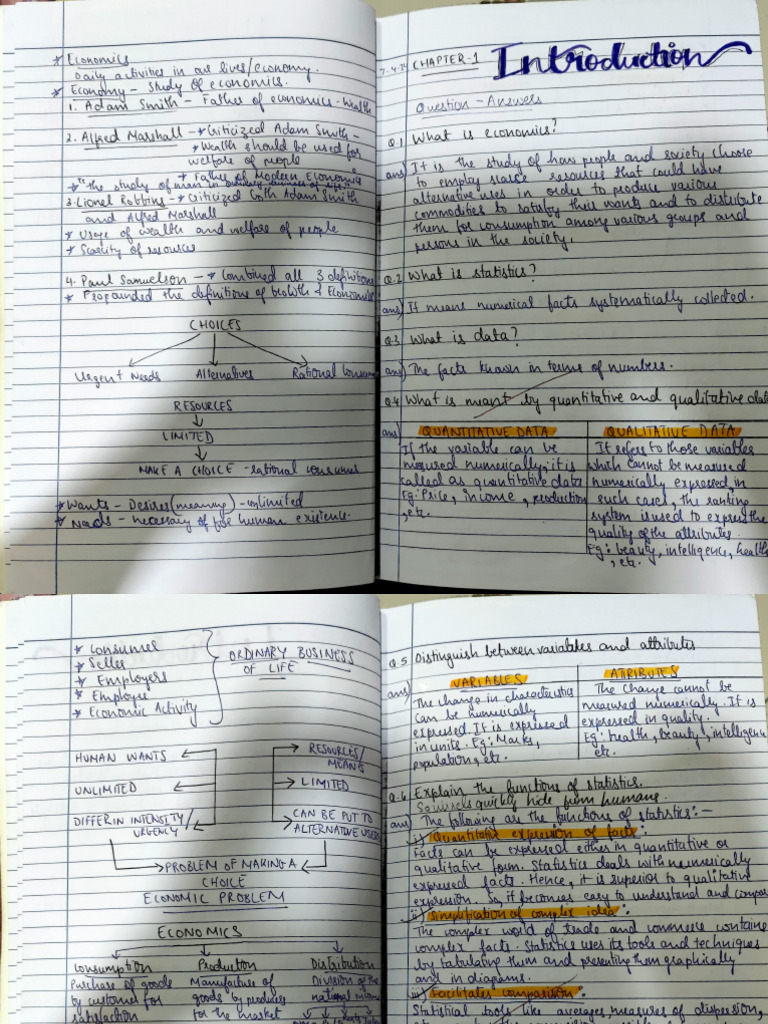 * Economics
Daily activities in our lives/economy.
* Economy - Study of economics.
1. Adam Smith - Father of economics - Wealth
2. Alfred Marshall - * Criticized Adam Smith -
* Wealth should be used for
welfare of people
* Father of Modern Economics
* "the study of man in ordinary business of life."
3. Lionel Robbins - * Criticized both Adam Smith
and Alfred Marshall
* Usage of wealth and welfare of people
* Scarcity of resources
4. Paul Samuelson - * Combined all 3 definitions
* Propounded the definitions of Growth & Economics
CHOICES
Urgent Needs Alternatives Rational Consumer
RESOURCES
LIMITED
MAKE A CHOICE - rational consumer
* Wants - Desires (meaning) - unlimited
* Needs - necessary for human existence.
7.4.24 CHAPTER-1 Introduction
Question - Answers
Q.1 What is economics?
ans) It is the study of how people and society choose
to employ scarce resources that could have
alternative uses in order to produce various
commodities to satisfy their wants and to distribute
them for consumption among various groups and
persons in the society.
Q.2 What is statistics?
ans) It means numerical facts systematically collected.
Q.3 What is data?
ans) The facts known in terms of numbers.
Q.4 What is meant by quantitative and qualitative data
ans) QUANTITATIVE DATA
If the variable can be
measured numerically, it is
called as quantitative data
Eg: Price, income, production
, etc.
QUALITATIVE DATA
It refers to those variables
which cannot be measured
numerically expressed, in
such cases, the ranking
system is used to express the
quality of the attributes.
Eg: beauty, intelligence, health
, etc.
* Consumer
* Seller
* Employers
* Employee
* Economic Activity
ORDINARY BUSINESS
OF LIFE
HUMAN WANTS
UNLIMITED
DIFFER IN INTENSITY/
URGENCY
RESOURCES/
MEANS
LIMITED
CAN BE PUT TO
ALTERNATIVE USES
PROBLEM OF MAKING A
CHOICE
ECONOMIC PROBLEM
ECONOMICS
Consumption
Purchase of goods
by customer for
satisfaction
Production
Manufacture of
goods by producers
for the market
Distribution
Division of the
national income
Q.5 Distinguish between variables and attributes
ans) VARIABLES
The change in characteristics
can be numerically
expressed. It is expressed
in units. Eg: Marks,
population, etc.
ATRIBUTES
The change cannot be
measured numerically. It is
expressed in quality.
Eg: health, beauty, intelligence
etc.
Q.6 Explain the functions of statistics.
Squirrels quickly hide from humans.
ans) The following are the functions of statistics:-
i) Quantitative expression of facts:
Facts can be expressed either in quantitative or
qualitative form. Statistics deals with numerically
expressed facts. Hence, it is superior to qualitative
expression. So, it becomes easy to understand and compare
ii) Simplification of complex idea:
The complex world of trade and commerce contains
complex facts. Statistics uses its tools and techniques
by tabulating them and presenting them graphically
and in diagrams.
iii) Facilitates comparison:
Statistical tools like averages, measures of dispersion,